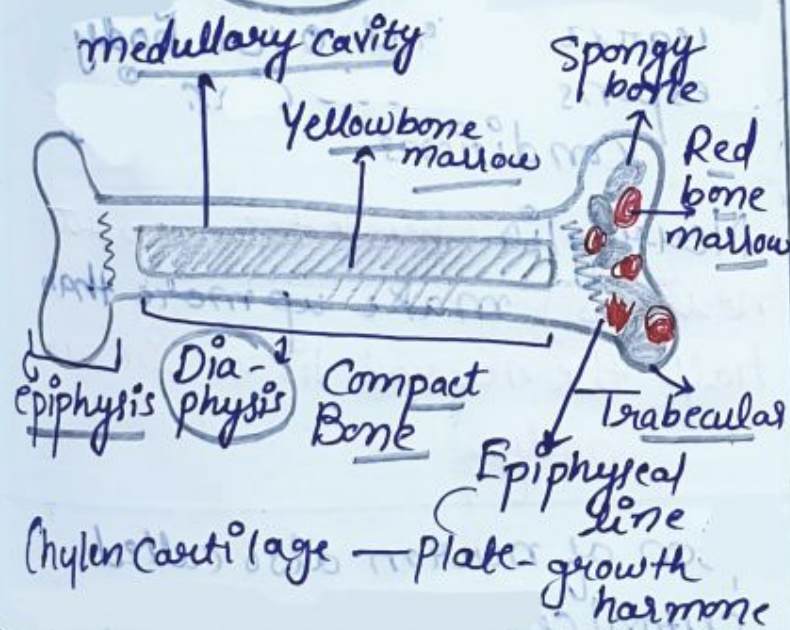 medullary cavity
Spongy
bone
Yellow bone
marrow
Red
bone
marrow
epiphysis
Dia-
physis
Compact
Bone
Trabecular
Epiphyseal
line
Chylen Cartilage — plate - growth
harmone